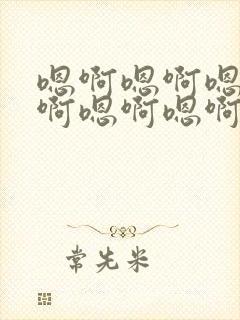 嗯啊嗯啊嗯
啊嗯啊嗯啊
常先米